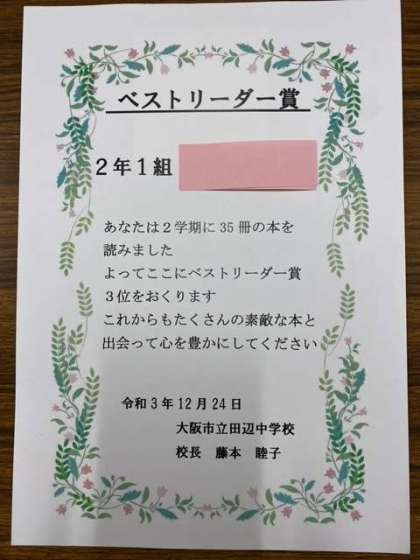 ベストリーダー賞
２年１組
あなたは２学期に 35 冊の本を
読みました
よってここにベストリーダー賞
３位をおくります
これからもたくさんの素敵な本と
出会って心を豊かにしてください
令和３年 12 月 24 日
大阪市立田辺中学校
校長　藤本　睦子